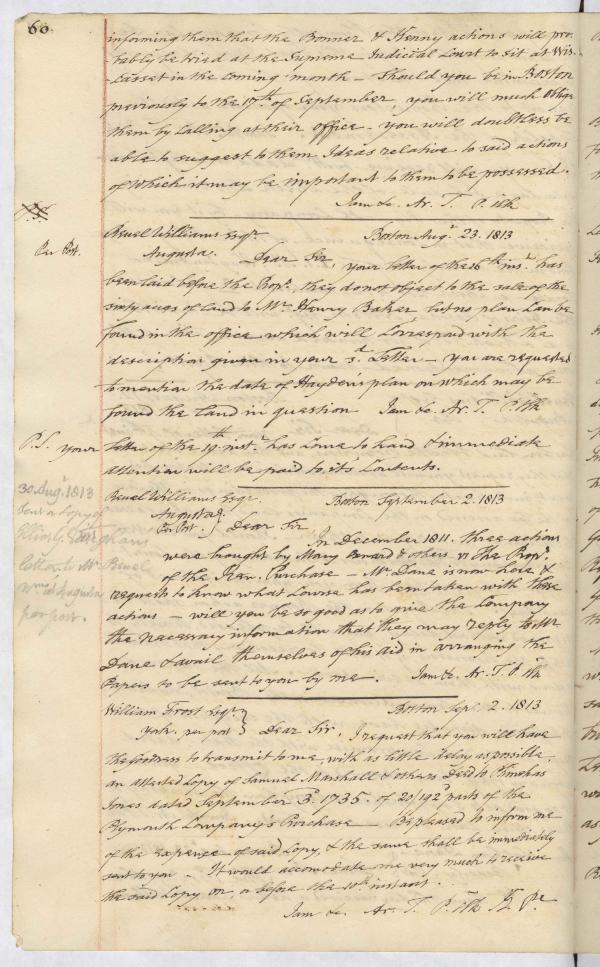 60.
informing them that the Bonner & Kenny actions will pro-
-bably be tried at the Supreme Judicial Court to sit at Wis-
-casset in the coming month – Should you be in Boston
previously to the 17th of September, you will much oblige
them by calling at their office – you will doubtless be
able to suggest to them Ideas relative to said actions
of which it may be important to them to be possessed.
I am &c. Ar. T.
Reuel Williams Esqr. Boston Augt. 23. 1813
Per Post.
Augusta. Dear Sir, your letter of the 16th inst. has
been laid before the Propr. they do not object to the sale of the
sixty acres of land to Mr. Henry Baker, but no plan can be
found in the office which will correspond with the
description given in your sd. Letter – you are requested
to mention the date of Hayden's plan on which may be
found the land in question I am &c. Ar. T.
P.S. your letter of the 19 inst. has come to hand & immediate
attention will be paid to it's Contents.
30 Augt. 1813
Sent a Copy of
Elijah
letter to Mr. Reuel
Wms. at Augusta
per post.
Reuel Williams Esqr. Boston September 2. 1813
Augusta
Per Post. } Dear Sir, In December 1811. three actions
were brought by Mary & others vs The Propr.
of the Ken. Purchase – Mr. Dane is now here &
requests to know what Course has been taken with these
actions – will you be so good as to give the Company
the necessary information that they may reply to Mr
Dane & avail themselves of his aid in arranging the
Papers to be sent to you by me. I am &c. Ar. T.
William Frost Esqr. } Boston Sepr. 2. 1813
York. per post } Dear Sir, I request that you will have
the goodness to transmit to me, with as little delay as possible,
an attested Copy of Samuel Marshall & others Deed to
Jones dated September 3d. 1735. of 20/192d parts of the
Plymouth Company's Purchase – Be pleased to inform me
of the expense of said Copy, & the same shall be immediately
sent to you – It would accomodate me very much to receive
the said Copy on, or before the 10th instant.
I am &c. Ar. T.